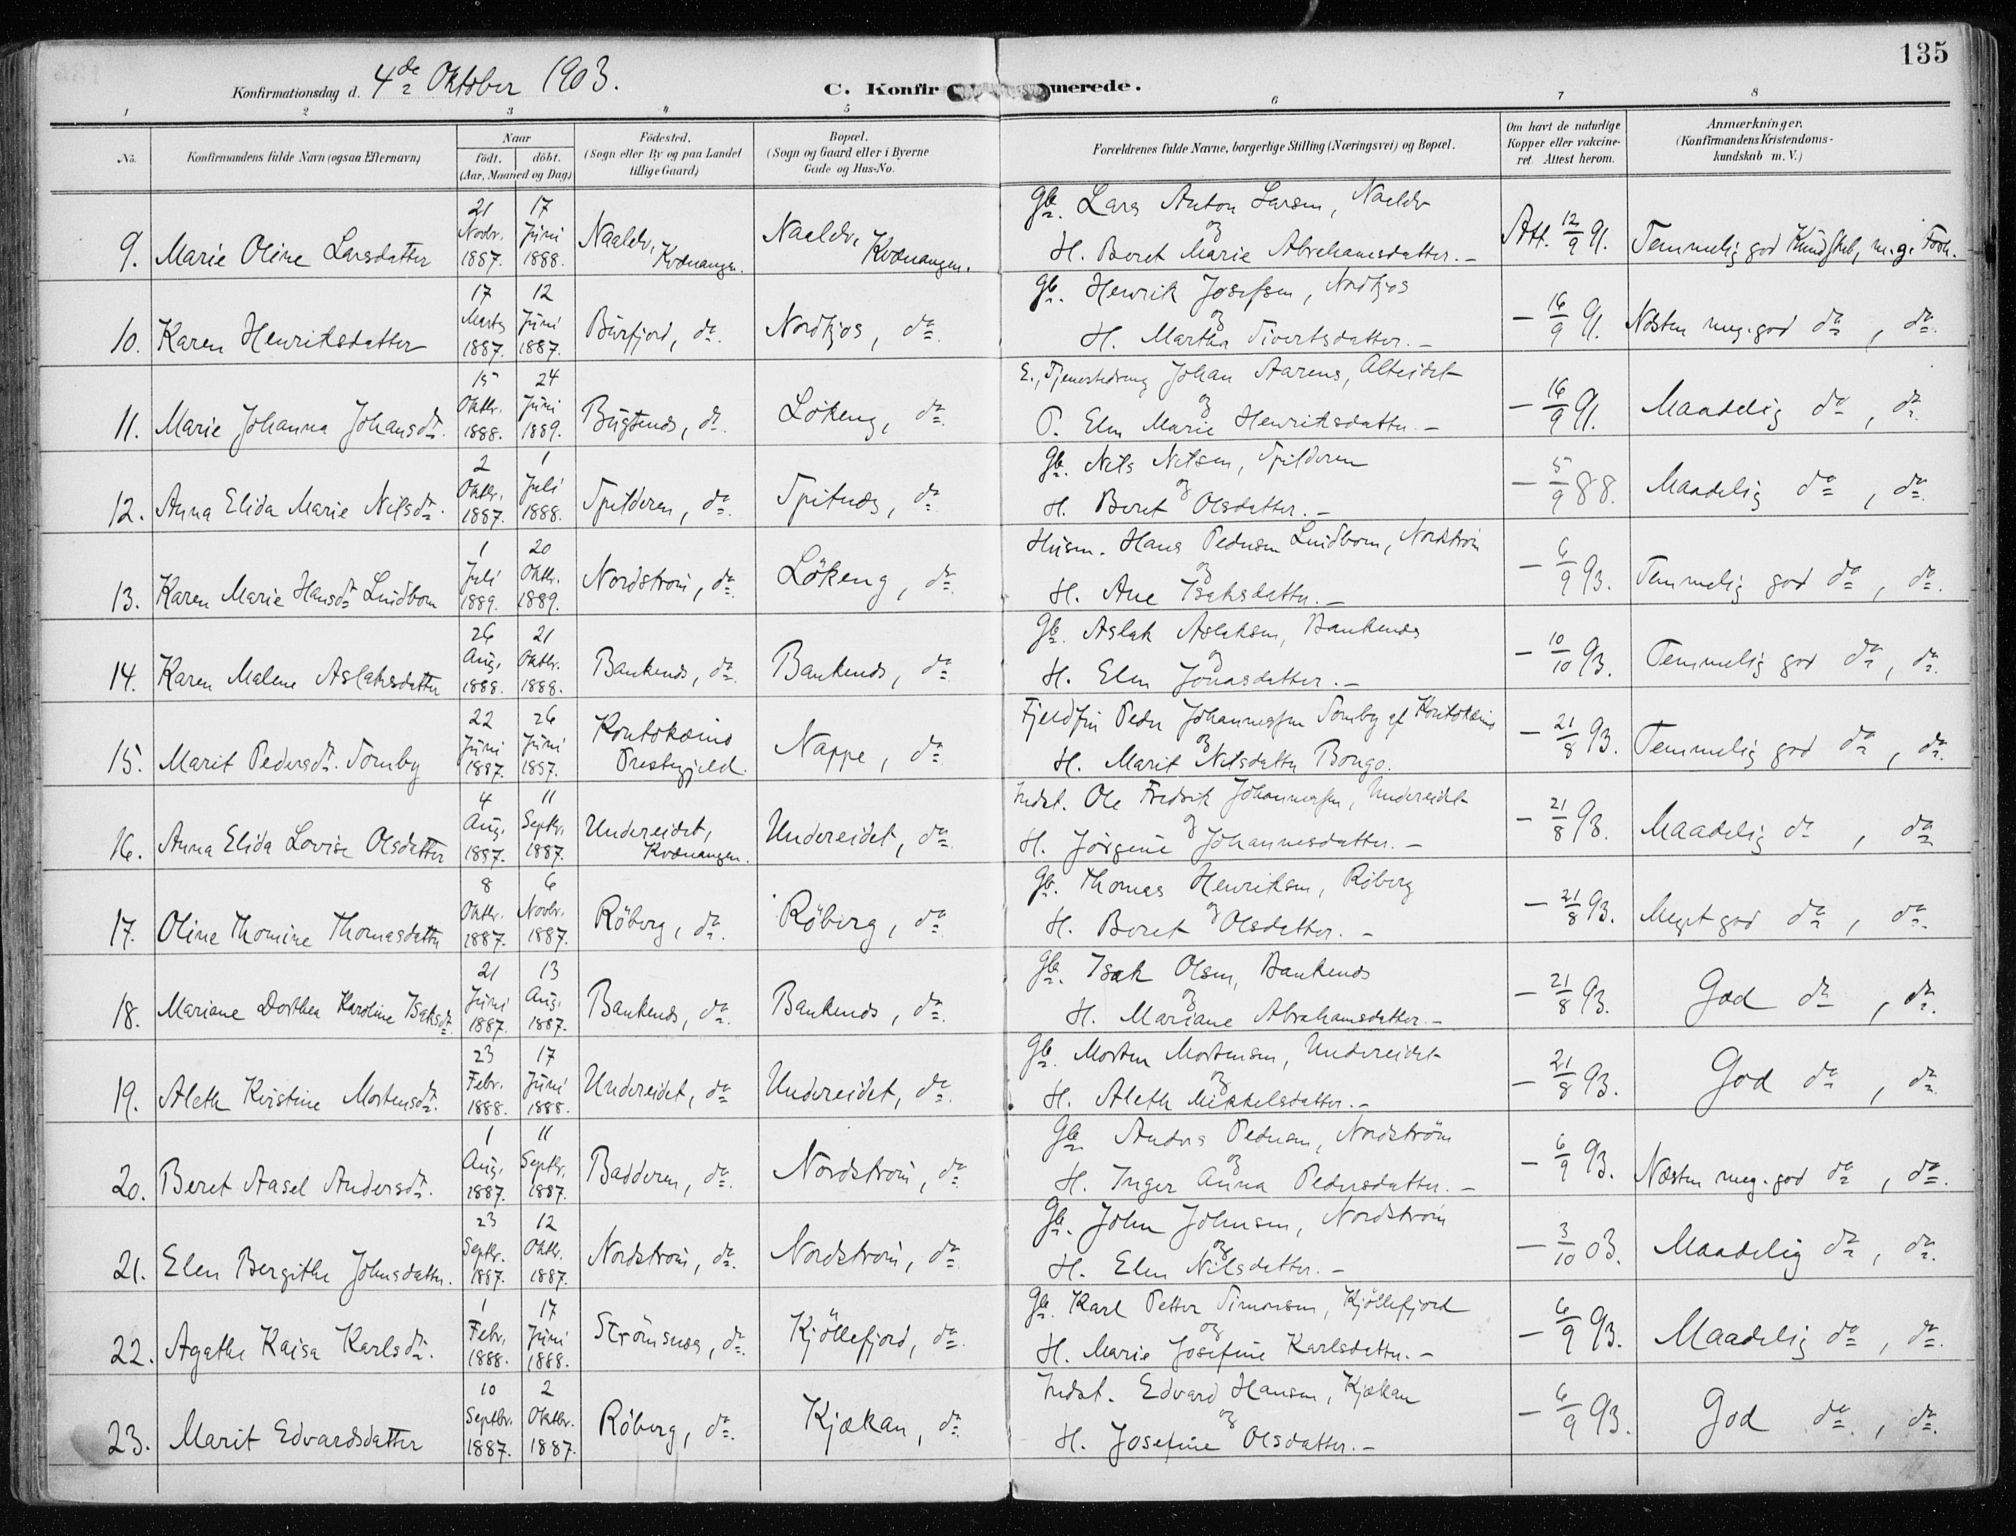 135
Konfirmationsdag d. 4de Oktober 1903. C. Konfir merede.
1 2 3 4 5 6 7 8
No. Konfirmandens fulde Navn (ogsaa Efternavn) Naar födt. döbt. (Aar, Maaned og Dag) Födested. (Sogn eller By og paa Landet tillige Gaard) Bopæl. (Sogn og Gaard eller i Byerne Gade og Hus-No. Forældrenes fulde Navne, borgerlige Stilling (Næringsvei) og Bopæl. Om havt de naturlige Kopper eller vakcineret. Attest herom. Anmærkninger. (Konfirmandens Kristendomskundskab m. V.)
9. Marie Oline Larsdatter 21 Novbr. 1887. 17 Juni 1888. Naaldv, Kvænangen. Naaldv, Kvænangen. Gb. Lars Anton Larsen, Naaldv
og
H. Beret Marie Abrahamsdatter. – Att. 12/9 91. Temmelig god Kundskab, m.g. Forh.
10. Karen Henriksdatter 17 Marts 1887. 12 Juni 1887. Burfjord, do. Nordkjos, do. Gb. Henrik Josefsen, Nordkjos
og
H. Martha Sivertsdatter. – – 16/9 91. Næsten meg. god do, do.
11. Marie Johanna Johansdtr. 15 Oktbr. 1888. 24 Juni 1889. Bugtenes, do. Lökeng, do. E., Tjenestedreng Johan Aarens, Alteidet
og
P. Elen Marie Henriksdatter. – – 16/9 91. Maadelig do, do.
12. Anna Elida Marie Nilsdtr. 2 Oktbr. 1887. 1 Juli 1888. Spilderen, do. Spitnes, do. Gb. Nils Nilsen, Spilderen
og
H. Beret Olsdatter. – – 5/9 88. Maadelig do, do.
13. Karen Marie Hansdtr Lindbom 1 Juli 1889. 20 Oktbr. 1889. Nordström, do. Lökeng, do. Husm. Hans Pedersen Lindbom, Nordström
og
H. Ane Isaksdatter. – – 6/9 93. Temmelig god do, do.
14. Karen Malene Aslaksdatter 26 Aug. 1888. 21 Oktbr. 1888. Baukenes, do. Baukenes, do. Gb. Aslak Aslaksen, Baukenes
og
H. Elen Jonasdatter. – – 10/10 93. Temmelig god do, do.
15. Marit Pedersdtr. Somby 22 Juni 1887. 26 Juni 1887. Koutokeino Prestegjeld. Nappe, do. Fjeldfin Peder Johannessen Somby af Koutokeino
og
H. Marit Nilsdatter Bongo. – 21/8 93. Temmelig god do, do.
16. Anna Elida Lovise Olsdatter 4 Aug. 1887. 11 Septbr. 1887. Undereidet, Kvænangen. Undereidet, do. Indst. Ole Fredrik Johannessen, Undereidet
og
H. Jörgine Johannesdatter. – – 21/8 93. Maadelig do, do
17. Oline Thomine Thomasdatter 8 Oktbr. 1887. 6 Novbr. 1887. Röberg, do. Röberg, do. Gb. Thomas Henriksen, Röberg
og
H. Beret Olsdatter. – – 21/8 93. Meget god do, do.
18. Mariane Dorthea Karoline Isaksdtr. 21 Juni 1887. 13 Aug. 1887. Baukenes, do. Baukenes, do. Gb. Isak Olsen, Baukenes
og
H. Mariane Abrahamsdatter. – – 21/8 93. God do, do.
19. Aleth Kristine Mortensdtr. 23 Febr. 1888. 17 Juni 1888. Undereidet, do Undereidet, do. Gb. Morten Mortensen, Undereidet
og
H. Aleth Mikkelsdatter. – – 21/8 93. God do, do.
20. Beret Aasel Andersdtr. 1 Aug. 1887. 11 Septbr. 1887. Badderen, do. Nordström, do. Gb. Anders Pedersen, Nordström
og
H. Inger Anna Pedersdatter. – – 6/9 93. Næsten meg. god do, do.
21. Elen Bergithe Johnsdatter. 23 Septbr. 1887. 12 Oktbr. 1887. Nordström, do. Nordström, do. Gb. John Johnsen, Nordström
og
H. Elen Nilsdatter. – – 3/10 03. Maadelig do, do.
22. Agathe Kaisa Karlsdtr. 1 Febr. 1888. 17 Juni 1888. Strömsnes, do. Kjöllefjord, do. Gb. Karl Petter Simonsen, Kjöllefjord
og
H. Marie Josefine Karlsdatter. – – 6/9 93. Maadelig do, do.
23. Marit Edvardsdatter 10 Septbr. 1887. 2 Oktbr. 1887. Röberg, do. Kjækan, do. Indst. Edvard Hansen, Kjækan
og
H. Josefine Olsdatter. – – 6/9 93. God do., do.